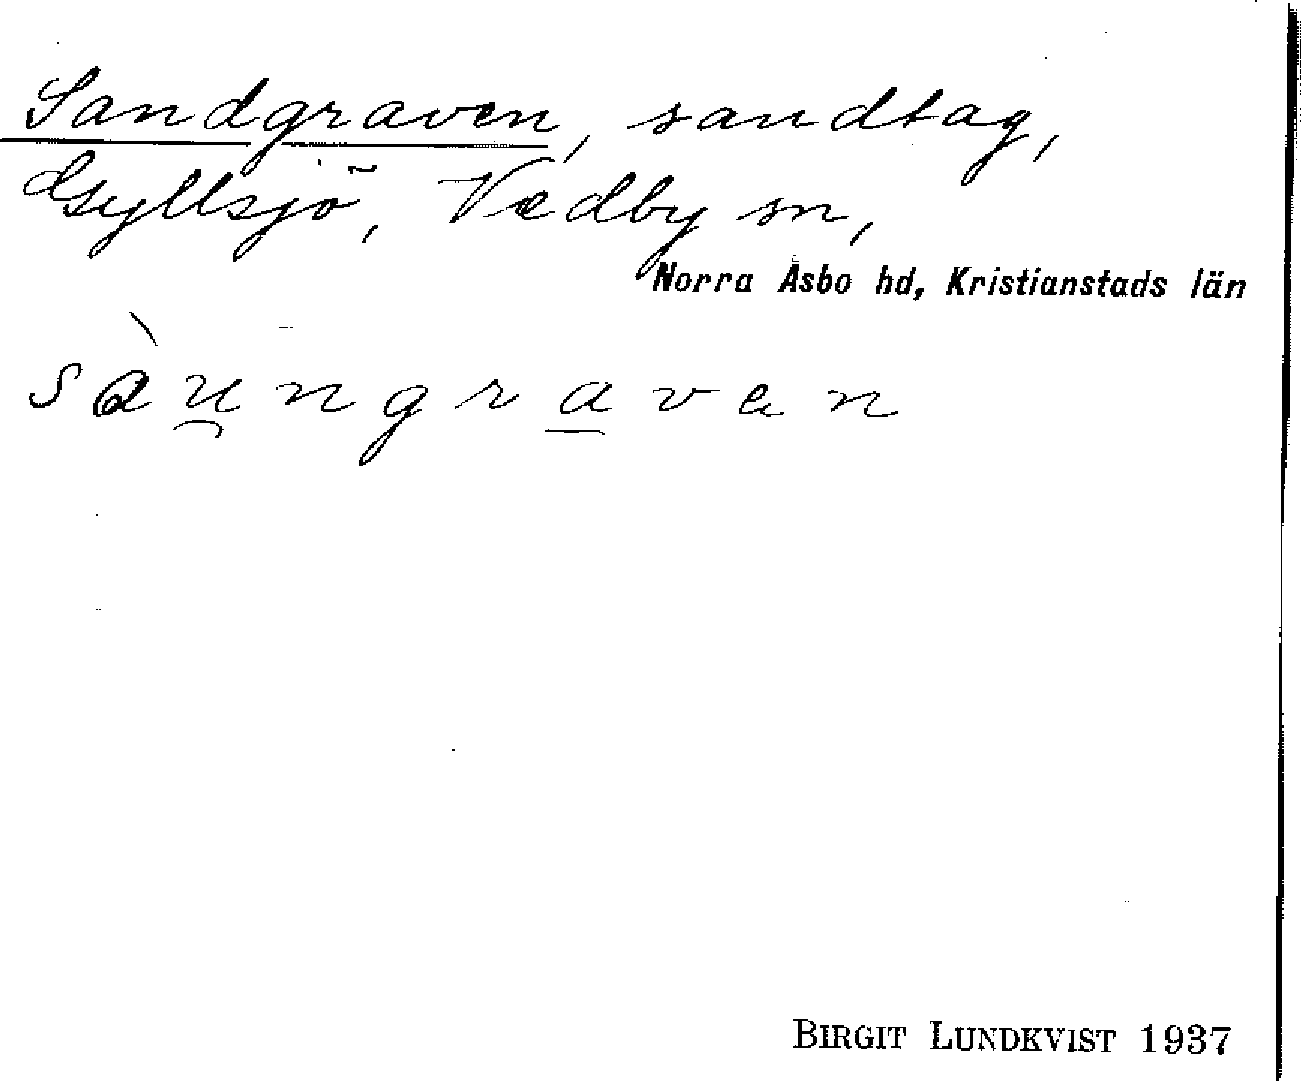 Sandgraven, sandtag,
Gyllsjö, Vedby sn,
Norra Åsbo hd, Kristianstads län
sàu̯ngra̲van
BIRGIT LUNDKVIST 1937